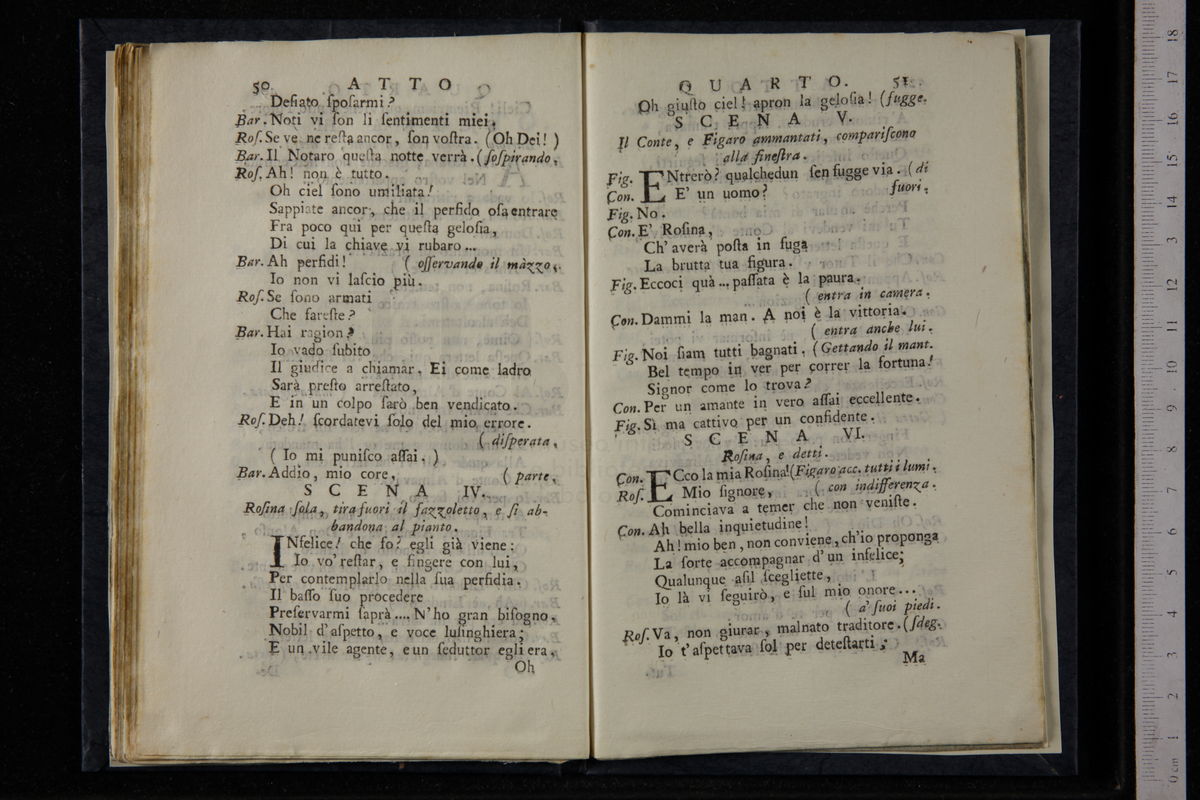 50 ATTO
Deſiato ſpoſarmi?
Bar. Noti vi ſon li ſentimenti miei.
Roſ. Se ve ne reſta ancor, ſon voſtra. (Oh Dei! )
Bar. Il Notaro queſta notte verrà. (ſoſpirando.
Roſ. Ah! non è tutto.
Oh ciel ſono umiliata!
Sappiate ancor, che il perfido oſa entrare
Fra poco qui per queſta geloſia,
Di cui la chiave vi rubaro ...
Bar. Ah perfidi! ( oſſervando il mazzo.
Io non vi laſcio più.
Roſ. Se ſono armati
Che fareſte?
Bar. Hai ragion?
Io vado ſubito
Il giudice a chiamar. Ei come ladro
Sarà preſto arreſtato,
E in un colpo ſarò ben vendicato.
Roſ. Deh! ſcordatevi ſolo del mio errore.
( diſperata.
( Io mi puniſco aſſai. )
Bar. Addio, mio core. ( parte.
SCENA IV.
Roſina ſola, tira fuori il fazzoletto, e ſi ab-
bandona al pianto.
INfelice! che fo? egli già viene:
Io vo' reſtar, e fingere con lui,
Per contemplarlo nella ſua perfidia.
Il baſſo ſuo procedere
Preſervarmi ſaprà .... N'ho gran biſogno.
Nobil d'aſpetto, e voce luſinghiera;
E un vile agente, e un ſeduttor egli era.
Oh
QUARTO. 51
Oh giuſto ciel! apron la geloſia! (fugge.
SCENA V.
Il Conte, e Figaro ammantati, compariſcono
alla fineſtra.
Fig. ENtrerò? qualchedun ſen fugge via. (di
Con. E' un uomo? fuori.
Fig. No.
Con. E' Roſina,
Ch'averà poſta in fuga
La brutta tua figura.
Fig. Eccoci quà ... paſſata è la paura.
( entra in camera.
Con. Dammi la man. A noi è la vittoria.
( entra anche lui.
Fig. Noi ſiam tutti bagnati. (Gettando il mant.
Bel tempo in ver per correr la fortuna!
Signor come lo trova?
Con. Per un amante in vero aſſai eccellente.
Fig. Sì ma cattivo per un confidente.
SCENA VI.
Roſina, e detti.
Con. ECco la mia Roſina! (Figaro acc. tutti i lumi.
Roſ. Mio ſignore, ( con indifferenza.
Cominciava a temer che non veniſte.
Con. Ah bella inquietudine!
Ah! mio ben, non conviene, ch'io proponga
La ſorte accompagnar d'un infelice;
Qualunque aſil ſcegliette,
Io là vi ſeguirò, e ſul mio onore...
( a' ſuoi piedi.
Roſ. Va, non giurar, malnato traditore. (ſdeg.
Io t'aſpettava ſol per deteſtarti;
Ma